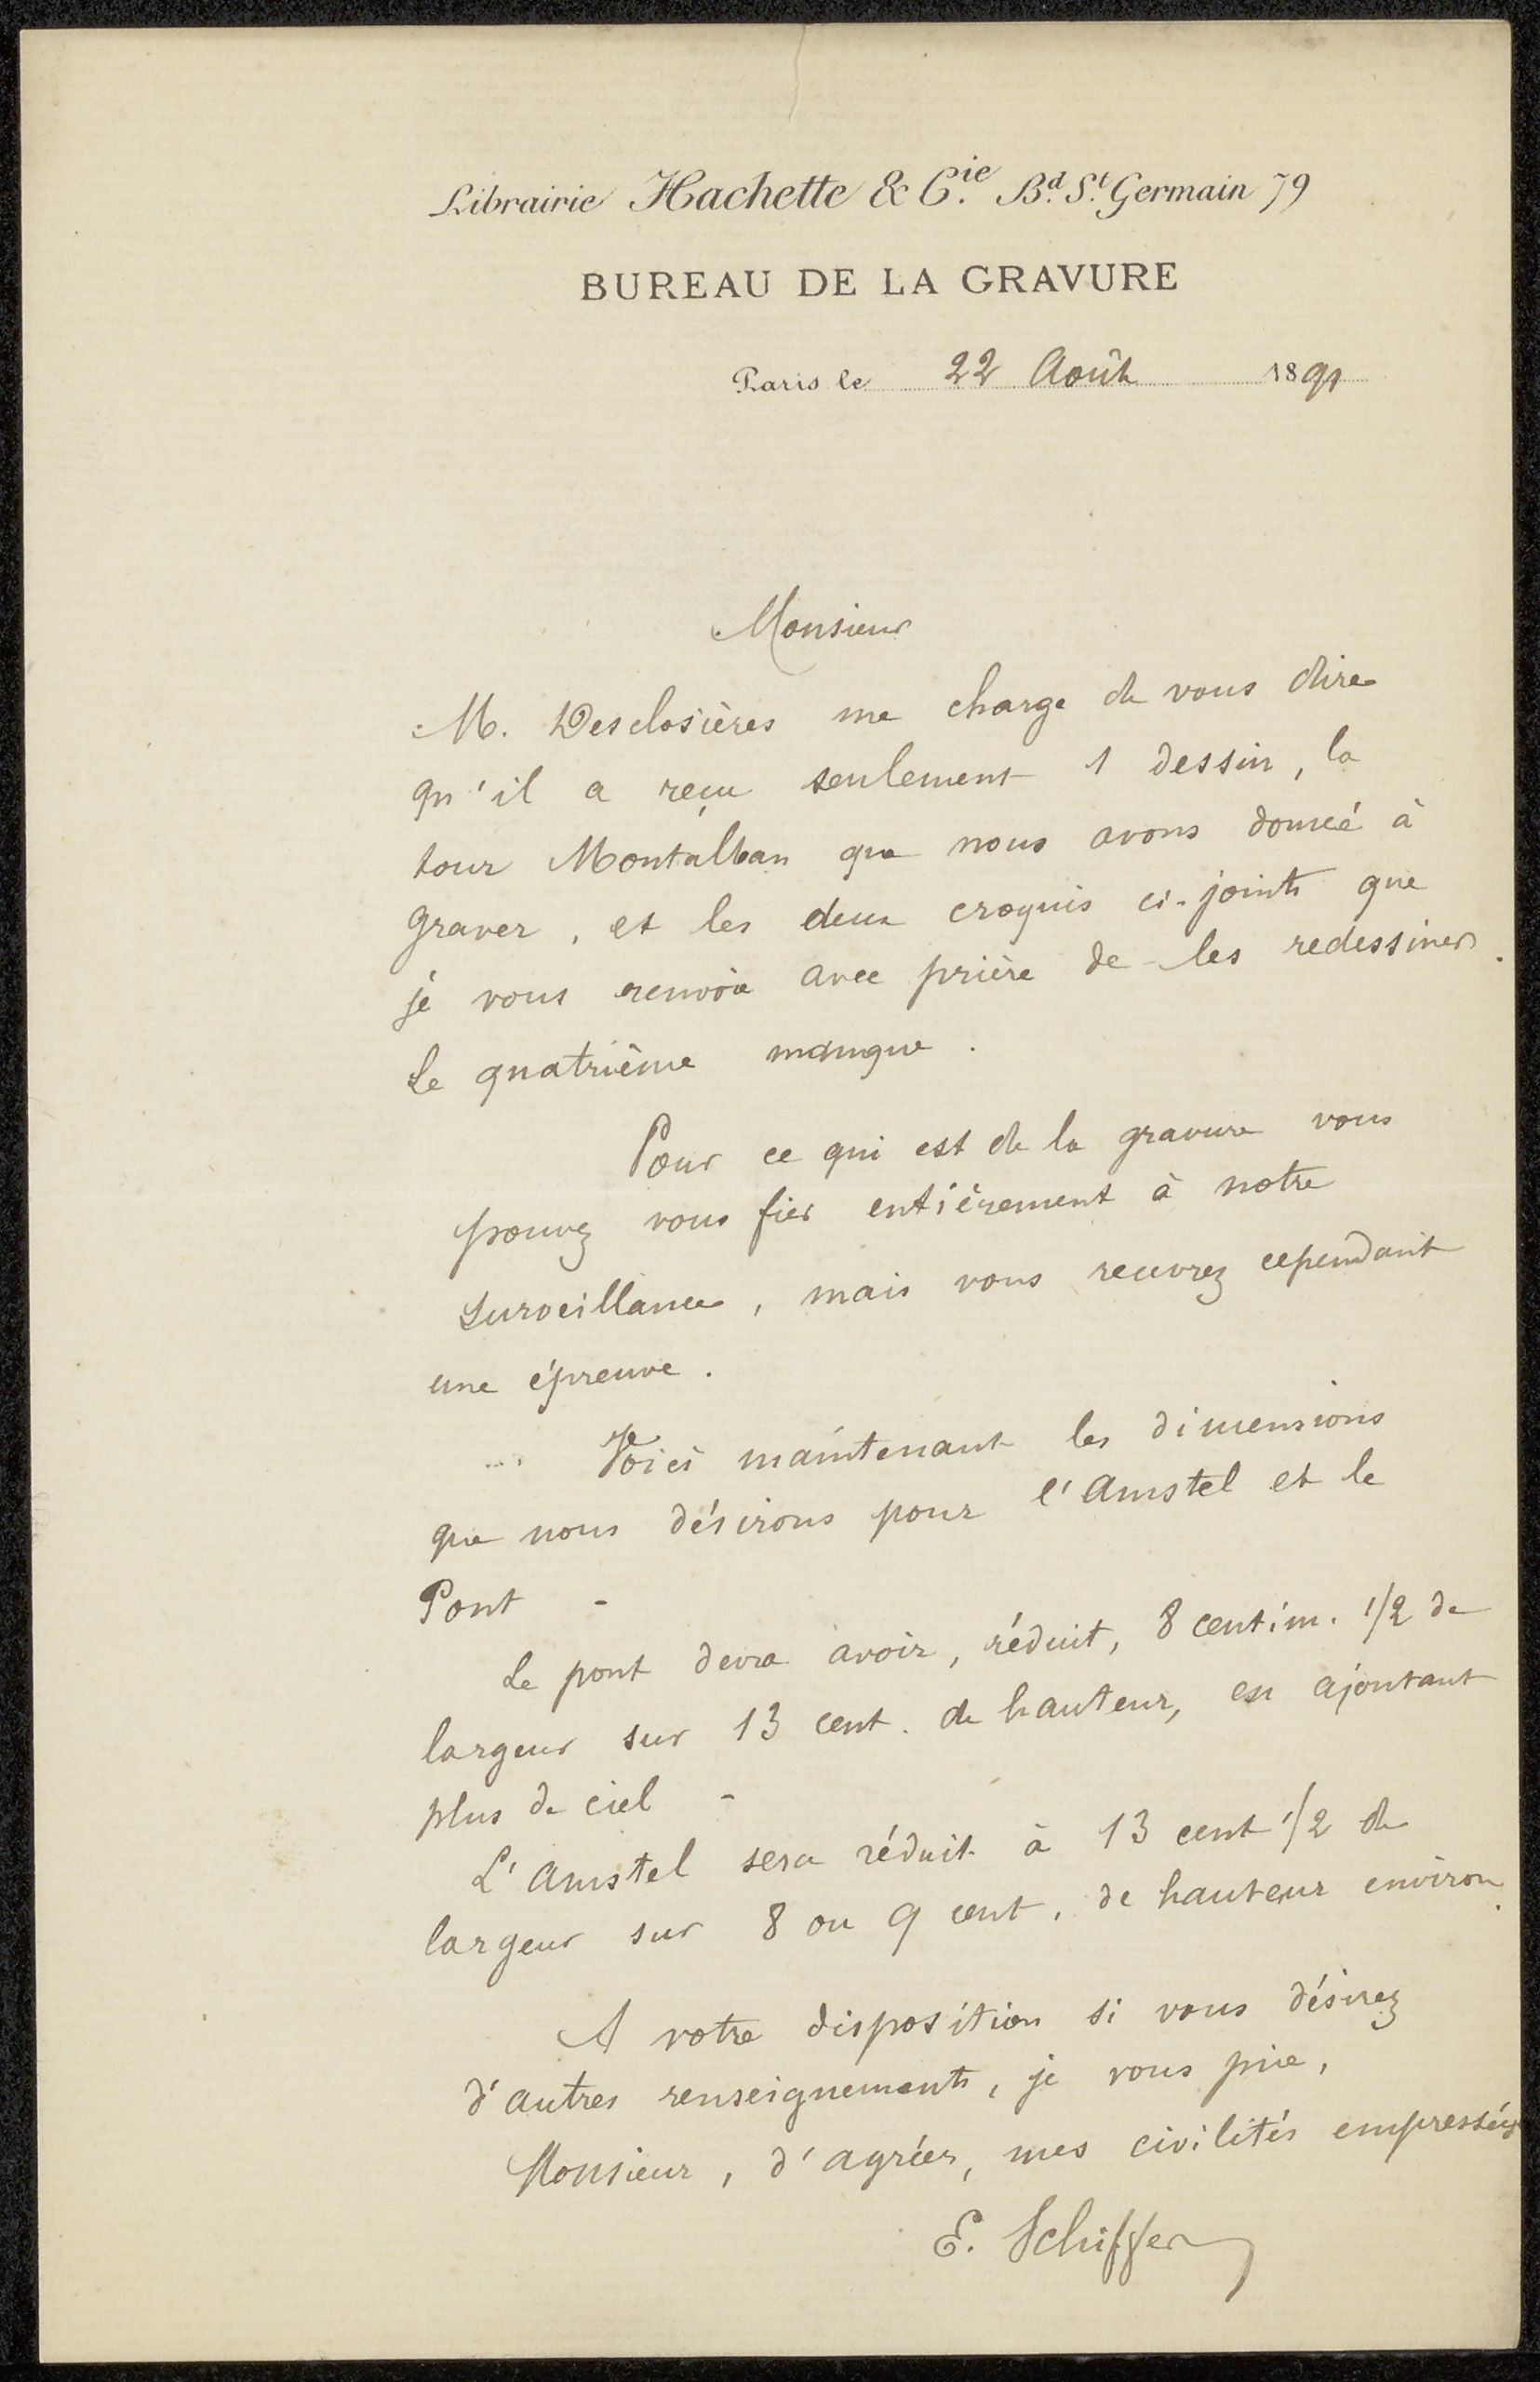 Librairie Hachette & C.ie B.d S.t Germain 79
BUREAU DE LA GRAVURE
Paris le 22 Août 1891
Monsieur
M. Desclosières me charge de vous dire
qu'il a reçu seulement 1 dessin, la
tour Montalban que nous avons donné à
graver, et les deux croquis ci-joints que
je vous renvoie avec prière de les redessiner.
Le quatrième manque.
Pour ce qui est de la gravure vous
pouvez vous fier entièrement à notre
surveillance, mais vous recevrez cependant
une épreuve.
Voici maintenant les dimensions
que nous désirons pour l'Amstel et le
Pont -
Le pont devra avoir, réduit, 8 centim. 1/2 de
largeur sur 13 cent. de hauteur, en ajoutant
plus de ciel -
L'Amstel sera réduit à 13 cent 1/2 de
largeur sur 8 ou 9 cent. de hauteur environ.
A votre disposition si vous désirez
d'autres renseignements, je vous prie,
Monsieur, d'agréer, mes civilités empressées
E. Schiffer